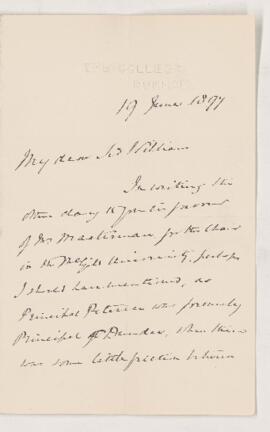 THE COLLEGE,
DURHAM.
19 June 1897
My dear Sir William
In writing the
other day to you in favour
of Mr Masterman for the Chair
in the McGill University, perhaps
I should have mentioned, as
Principal Peterson was formerly
Principal of Dundee, when there
was some little friction between